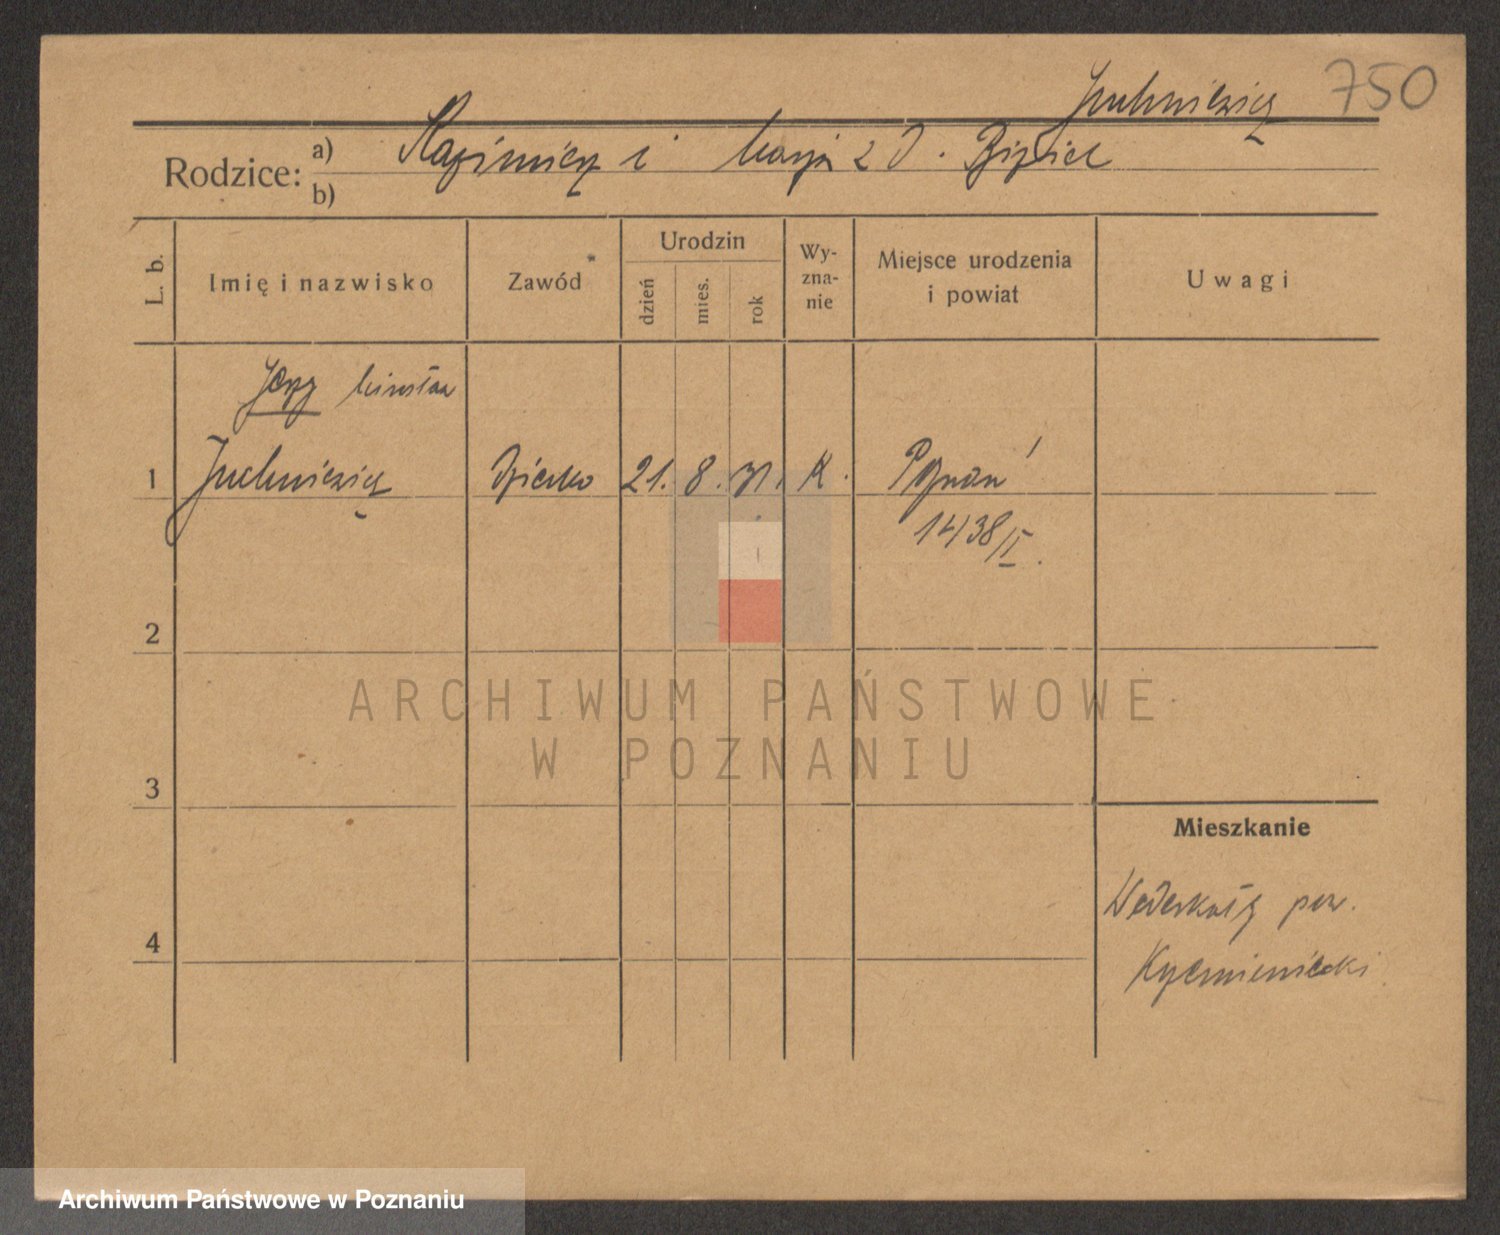 Juchniewicz 750
Rodzice: a) Kazimierz i Marja z d.
b)
L. b.
Imię i nazwisko
Zawód
Urodzin
dzień
mies.
rok
Wy-
zna-
nie
Miejsce urodzenia
i powiat
Uwagi
Jerzy Mirosław
1 Juchniewicz Dziecko 21. 8. 31. K. Poznań
14/38/II.
2
3
4
Mieszkanie
pow.
Krzemieniecki
ARCHIWUM PAŃSTWOWE
W POZNANIU
Archiwum Państwowe w Poznaniu